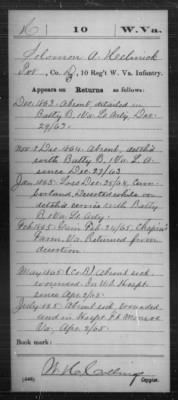 H | 10 | W.Va.
Solomon A. Helmick
Pvt., Co. D, 10 Reg't W. Va. Infantry.
Appears on Returns as follows:
Dec. 1863. Absent, detailed in
Batty B. 1 Va. Lt. Arty. Dec.
29/63.
1864. Absent, det'd
with Batty B. 1 Va. L. A.
since Dec. 29/63
Jan. 1865. Loss Dec. 25/64,
Deserted while on
detch'd service with Batty
B. 1 Va. Lt. Arty.
Feb. 1865. Gain Feb. 24/65. Chapin's
Farm Va. Returned from
desertion
May 1865 (Co. B) Absent sick
wounded. In U.S. Hospt.
since Apr. 2/65
July 1865. Absent sick, wounded
and in Hospt. Ft. Monroe
Va., Apr. 2/65
Book mark:
(546)
Copyist.